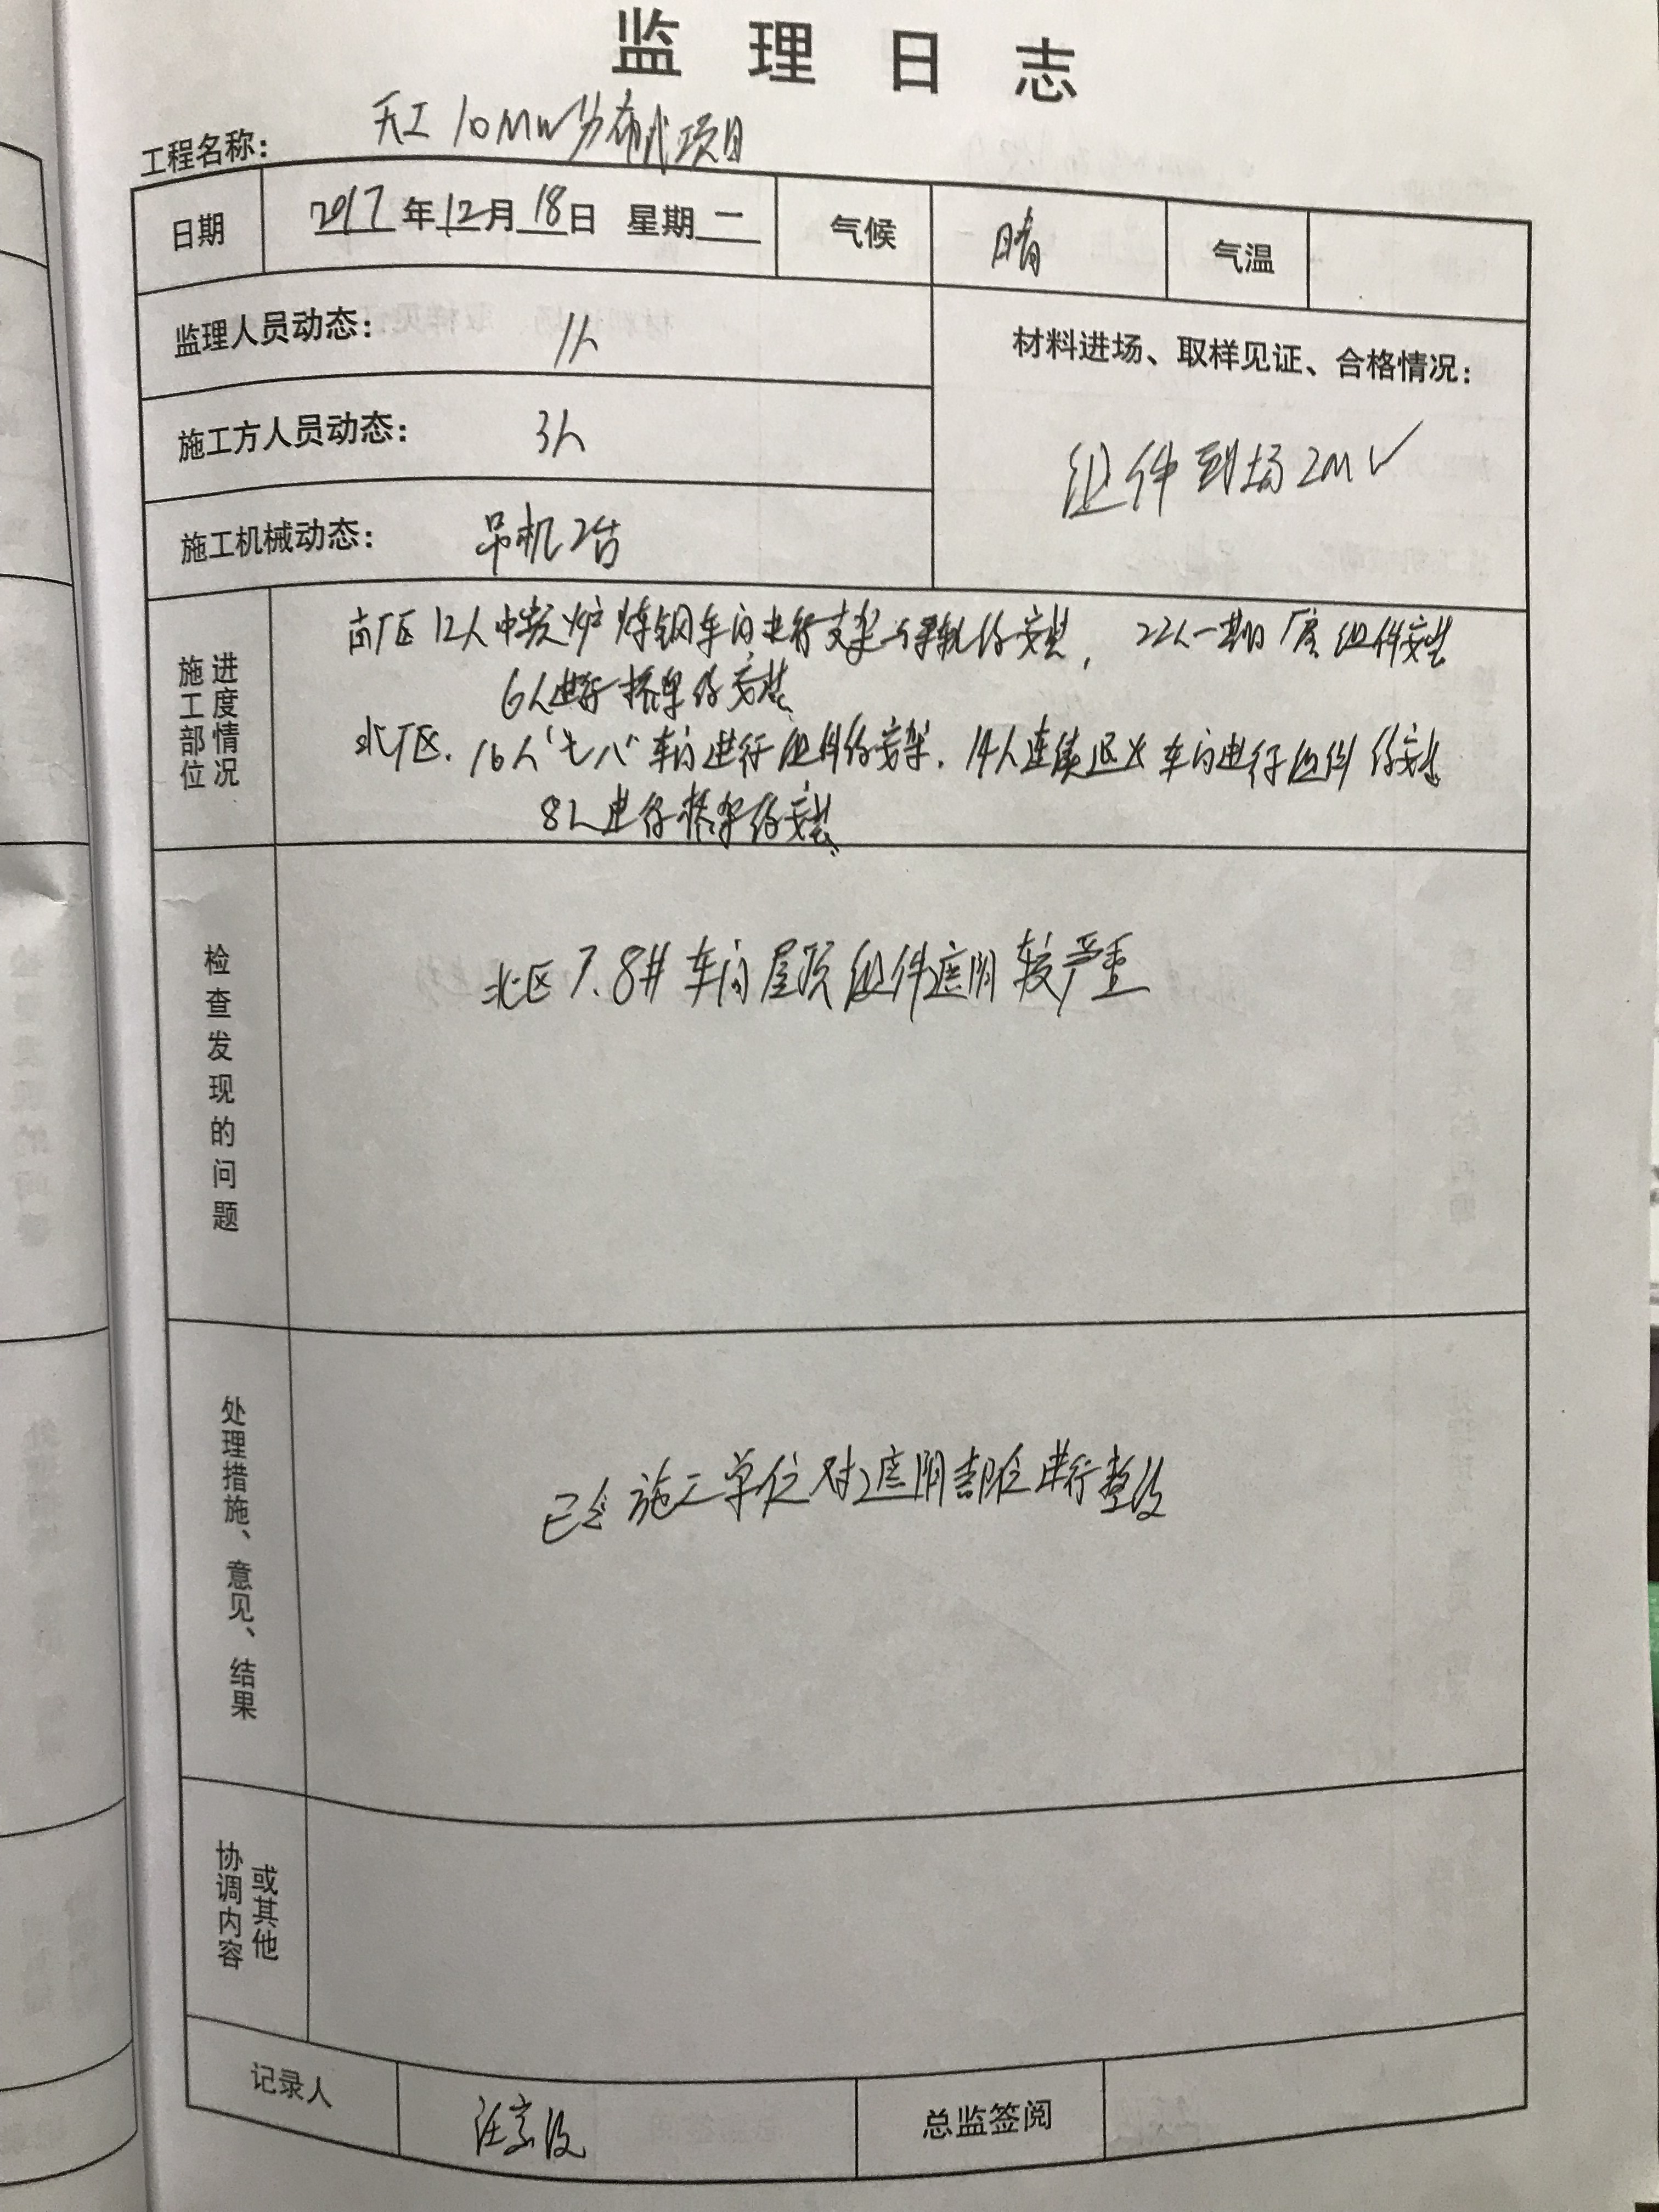 监理日志
工程名称： 天工10MW分布式项目
日期 2017年12月18日 星期二 气候 晴 气温
监理人员动态： 1人
材料进场、取样见证、合格情况：
施工方人员动态： 3人
组件到场2MW
施工机械动态： 吊机2台
施工部位进度情况
南厂区12人中频炉炼钢车间进行支架与导轨的安装，22人一期厂房组件安装
6人进行桥架的安装
北厂区.16人"七八"车间进行组件的安装.14人连续退火车间进行组件的安装
8人进行桥架的安装
检查发现的问题
北区7.8#车间屋顶组件遮阴较严重
处理措施、意见、结果
已令施工单位对遮阴部位进行整改
协调内容或其他
记录人 总监签阅